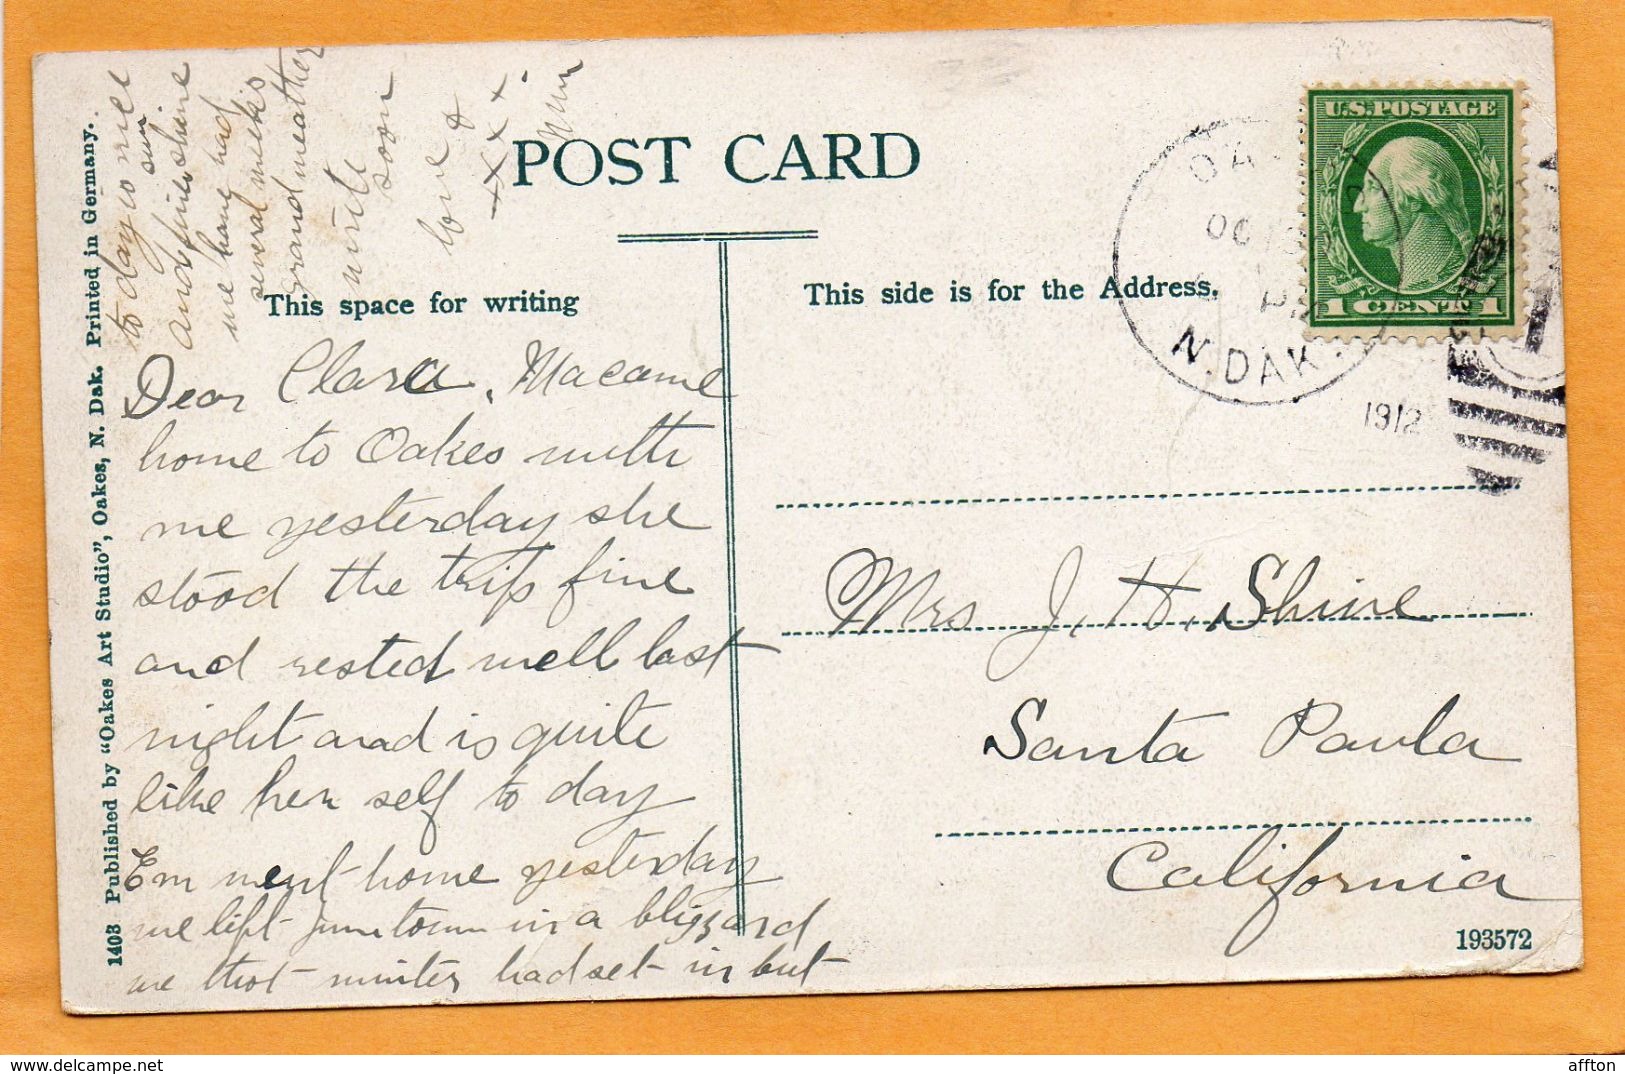 POST CARD
This space for writing
This side is for the Address.
U.S. POSTAGE
1 CENT 1
OA
OC
N. DAK.
1912
Dear Clara, Ma came
home to Oakes with
me yesterday she
stood the trip fine
and rested well last
night and is quite
like her self to day
Em went home yesterday
we left Jimtown in a blizzard
we thot winter had set in but
to day is nice
and fine sun shine
we have had
several weeks
grand weather
write
soon
love &
x x x x
Mrs J. H. Shire
Santa Paula
California
193572
1403 Published by "Oakes Art Studio", Oakes, N. Dak. Printed in Germany.
affton
delcampe.net